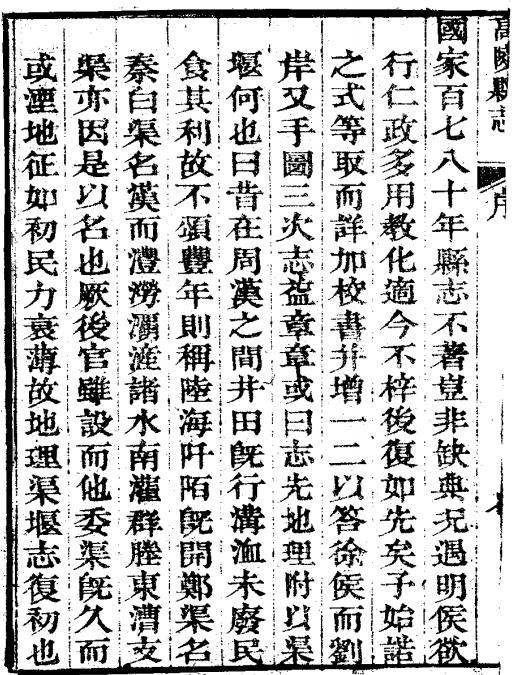 高陵縣志
序
國家百七八十年縣志不著豈非缺典况遇明侯欲
行仁政多用教化適今不梓後復如先矣予始諾
之式等取而詳加校書并增一二以答徐侯而劉
岸又手圖三次志益章章或曰志先地理附以渠
堰何也曰昔在周漢之間井田旣行溝洫未廢民
食其利故不頌豐年則稱陸海阡陌旣開鄭渠名
秦白渠名漢而灃澇潏滻諸水南灌群塍東漕支
渠亦因是以名也厥後官雖設而他委渠旣久而
或湮地征如初民力衰薄故地理渠堰志復初也